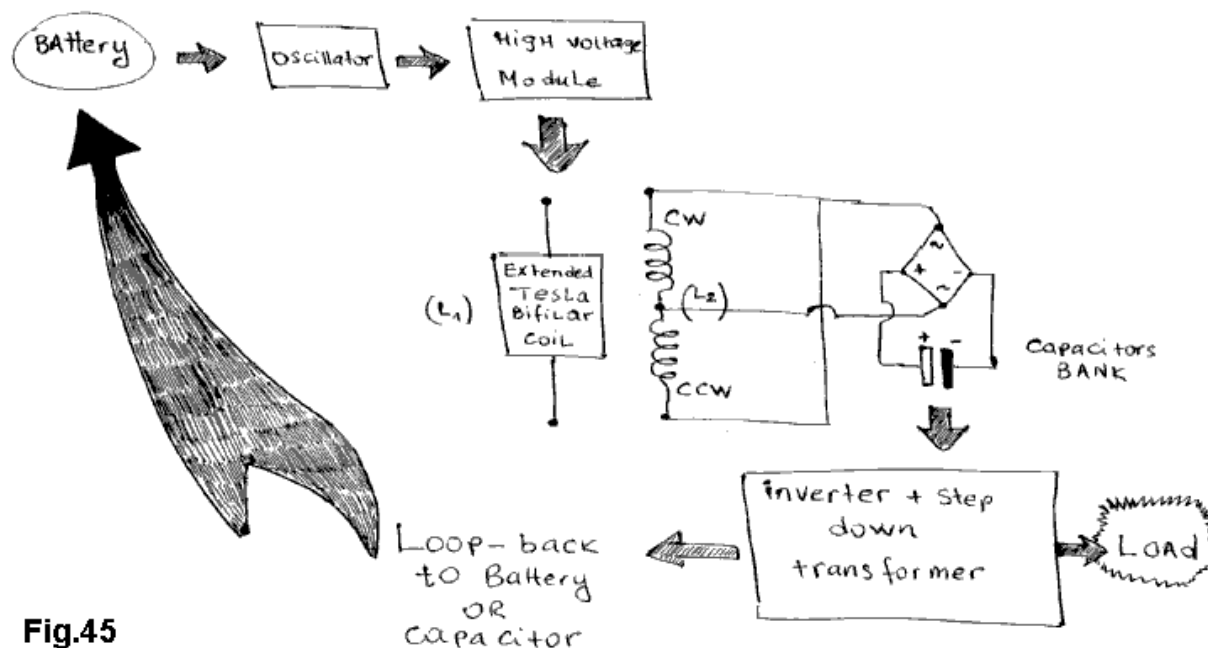 BAttery
Oscillator
HigH Voltage
ModuLe
CW
Extended
Tesla
BifiLar
coiL
(L₁)
(L₂)
~
+ -
~
+ -
CCW
Capacitors
BANK
inverter + step
down
transformer
LOAD
Loop-back
to Battery
OR
capacitor
Fig.45